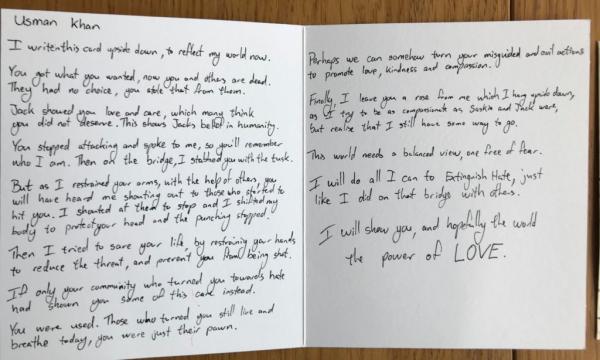 Usman Khan
I writen this card upside down, to reflect my world now.
You got what you wanted, now you and others are dead.
They had no choice, you stole that from them.
Jack showed you love and care, which many think
you did not deserve. This shows Jacks belief in humanity.
You stopped attacking and spoke to me, so you'll remember
who I am. Then on the bridge, I stabbed you with the tusk.
But as I restrained your arms, with the help of others you
will have heard me shouting out to those who started to
hit you. I shouted at them to stop and I shifted my
body to protect your head and the punching stopped.
Then I tried to save your life by restraining your hands
to reduce the threat, and prevent you from being shot.
If only your community who turned you towards hate
had shown you some of this care instead.
You were used. Those who turned you still live and
breathe today, you were just their pawn.
Perhaps we can somehow turn your misguided and evil actions
to promote love, kindness and compassion.
Finally, I leave you a rose from me which I hang upside down,
as I try to be as compassionate as Saskia and Jack were,
but realise that I still have some way to go.
This world needs a balanced view, one free of fear.
I will do all I can to Extinguish Hate, just
like I did on that bridge with others.
I will show you, and hopefully the world
the power of LOVE.